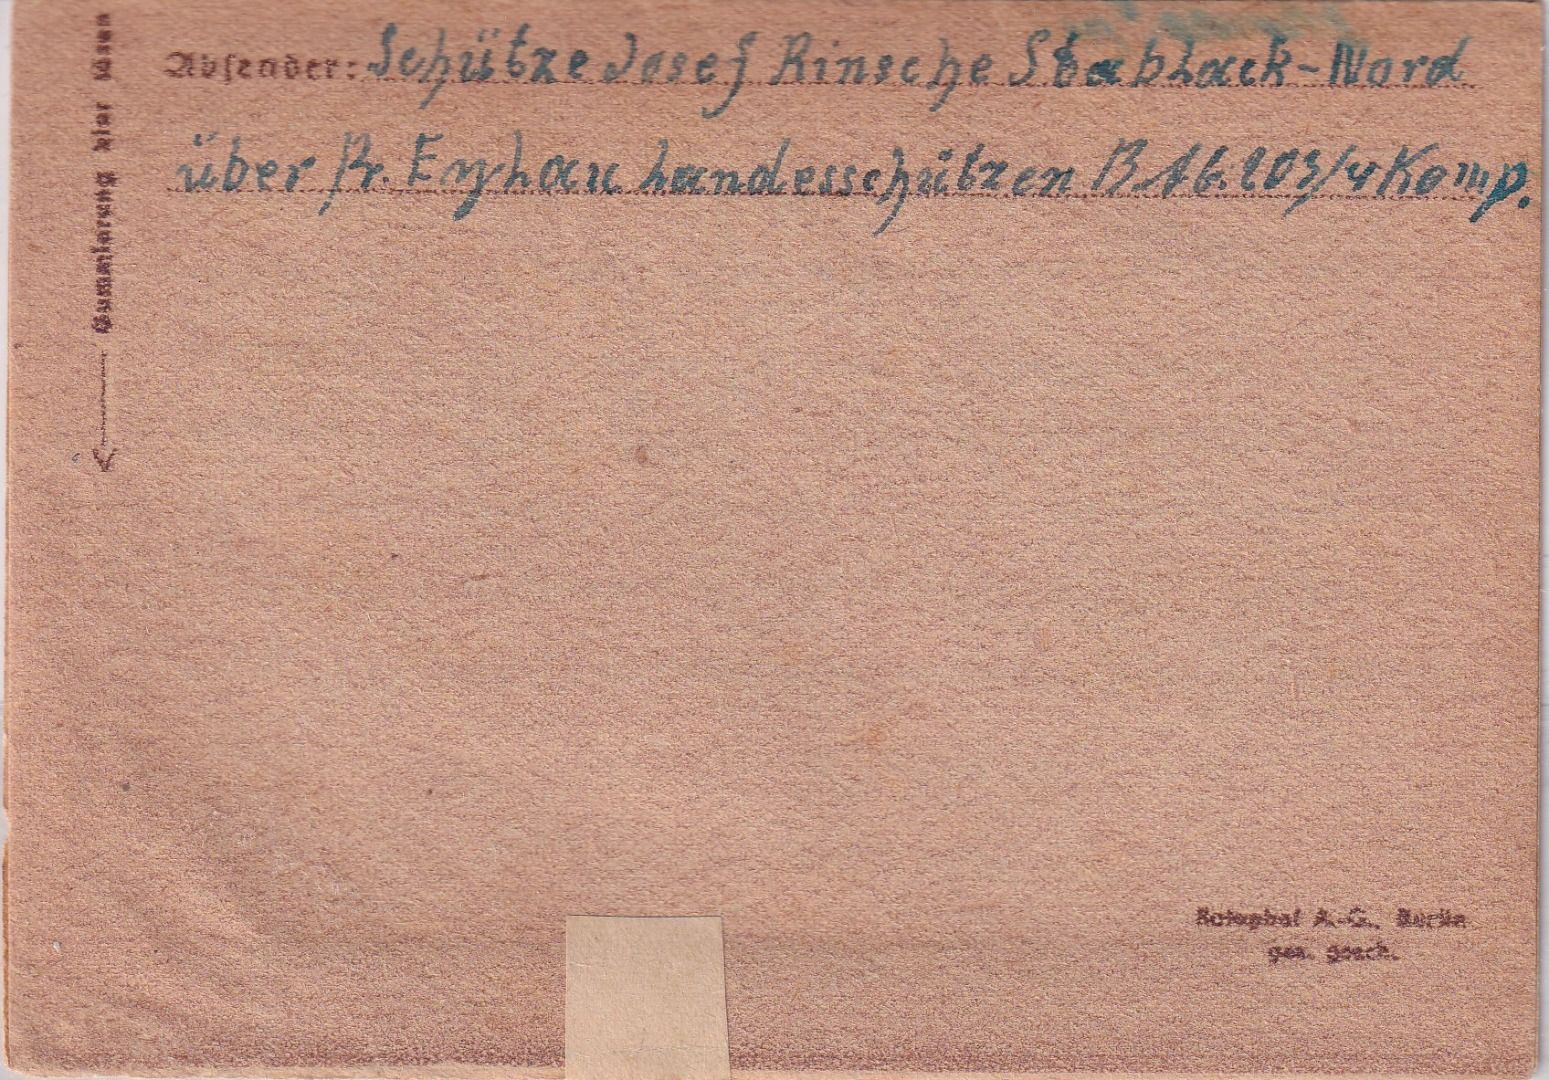 Gummierung hier lösen
Absender: Schütze Josef Rinsche Stablack-Nord
über Pr. Eylau Landesschützen B. A6. 203/4 Komp.
A.-G., Berlin
ges. gesch.